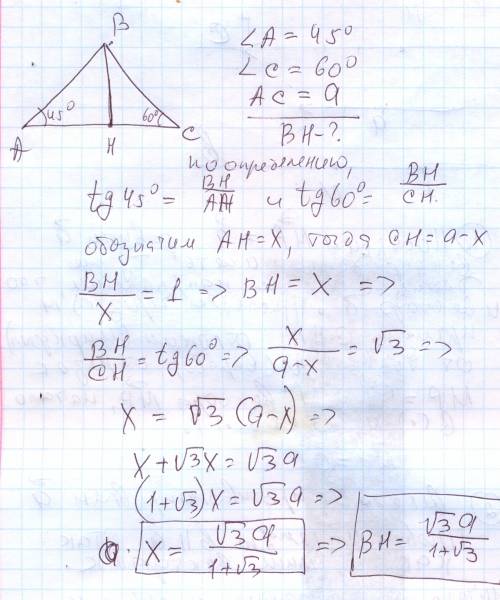 B
45° 60°
A H C
∠A = 45°
∠C = 60°
AC = a
BH-?
по определению,
tg 45° = BH/AH и tg 60° = BH/CH.
обозначим AH = X, тогда CH = a-x
BH/X = 1 => BH = X =>
BH/CH = tg 60° => X/(a-x) = √3 =>
X = √3 (a-x) =>
X + √3 X = √3 a
(1+√3) X = √3 a =>
X = √3 a/(1+√3) => BH = √3 a/(1+√3)